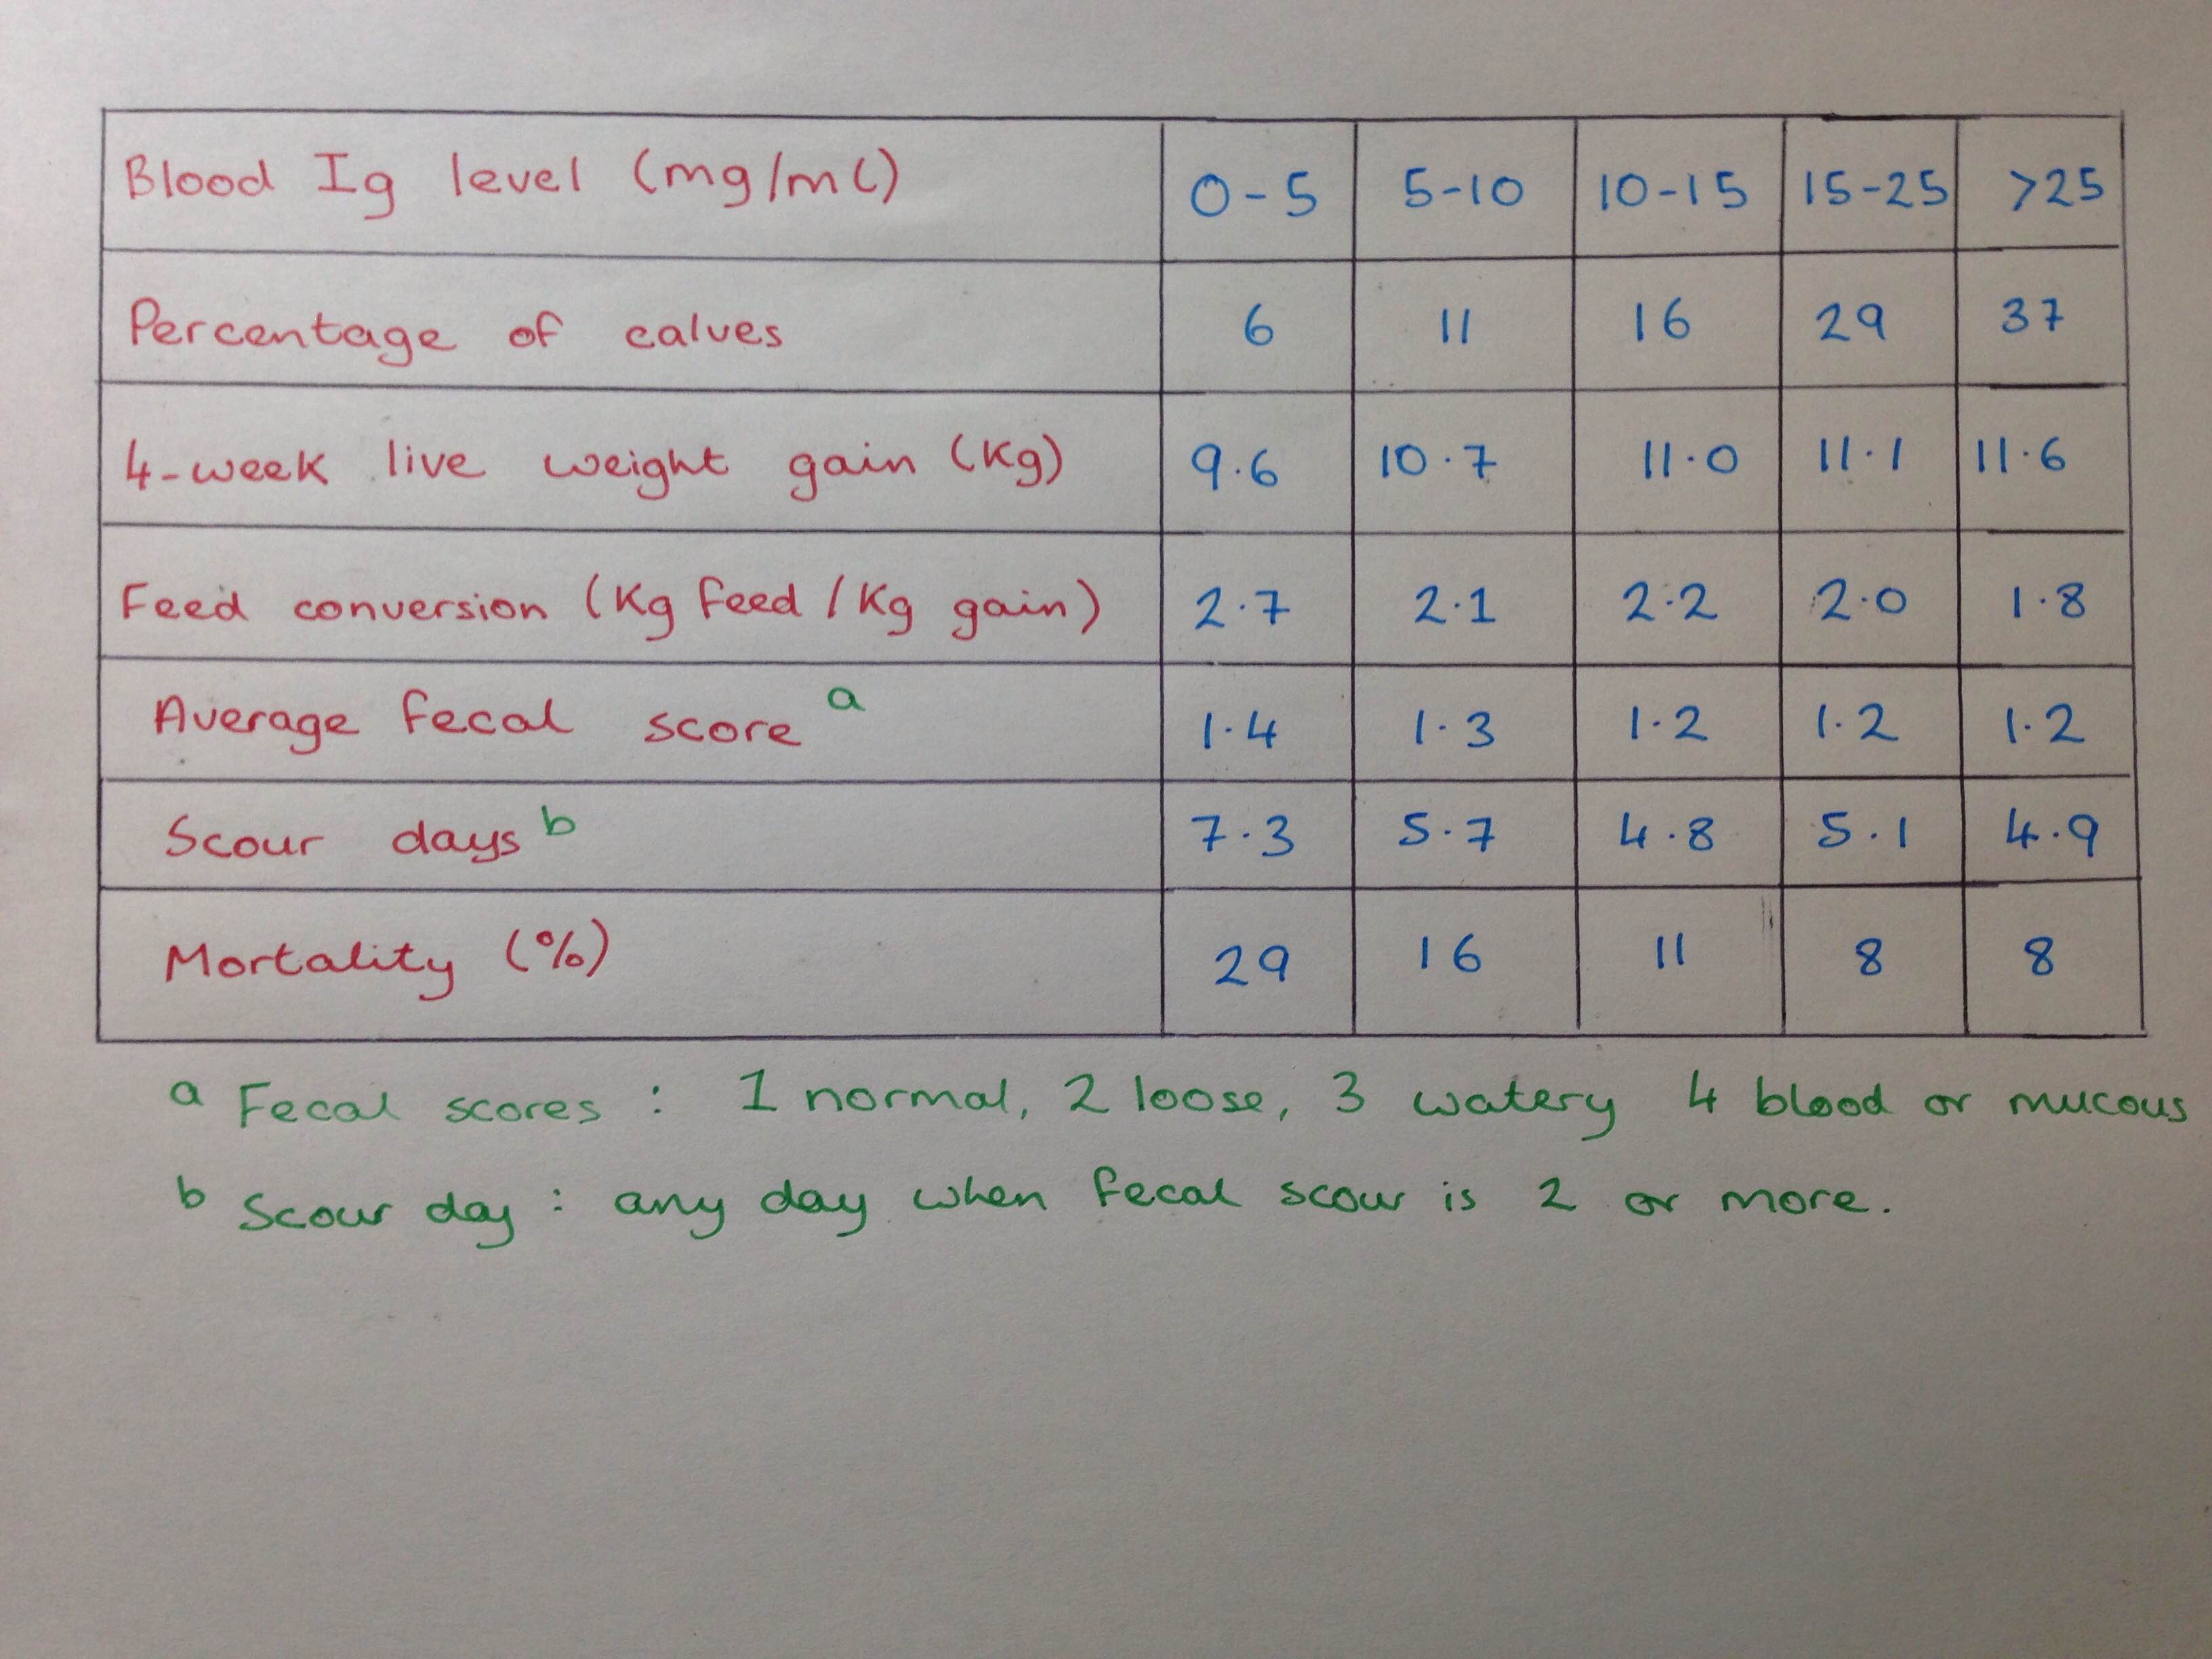 Blood Ig level (mg/ml) 0-5 5-10 10-15 15-25 >25
Percentage of calves 6 11 16 29 37
4-week live weight gain (Kg) 9.6 10.7 11.0 11.1 11.6
Feed conversion (Kg feed / Kg gain) 2.7 2.1 2.2 2.0 1.8
Average fecal score a 1.4 1.3 1.2 1.2 1.2
Scour days b 7.3 5.7 4.8 5.1 4.9
Mortality (%) 29 16 11 8 8
a Fecal scores : 1 normal, 2 loose, 3 watery 4 blood or mucous
b Scour day : any day when fecal scour is 2 or more.